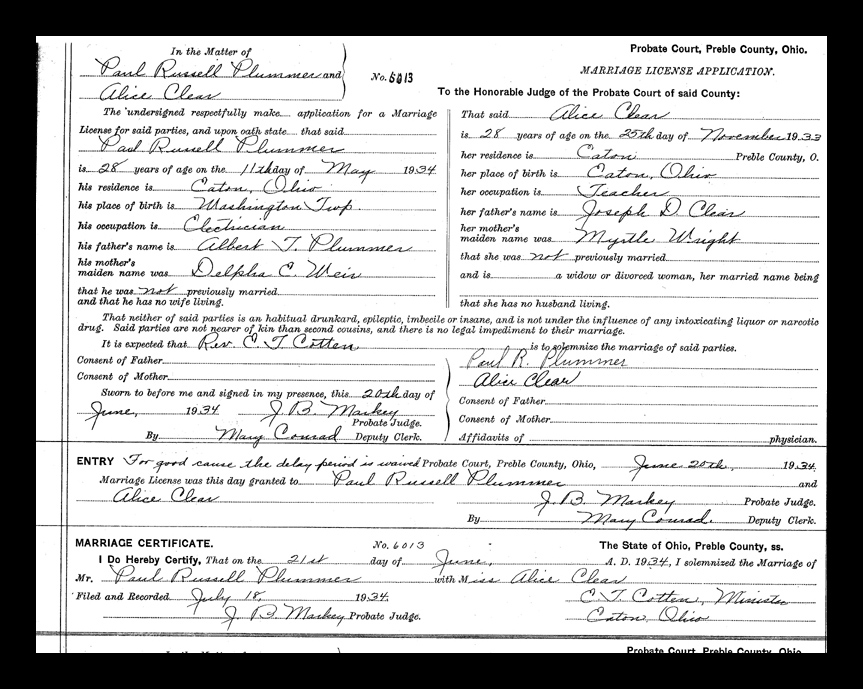 In the Matter of
Paul Russell Plummer and
Alice Clear
No. 6013
Probate Court, Preble County, Ohio.
MARRIAGE LICENSE APPLICATION.
To the Honorable Judge of the Probate Court of said County:
The undersigned respectfully make application for a Marriage
License for said parties, and upon oath state that said
Paul Russell Plummer
is 28 years of age on the 11th day of May 1934
his residence is Eaton, Ohio
his place of birth is Washington Twp.
his occupation is Electrician
his father's name is Albert T. Plummer
his mother's
maiden name was Delpha E. Weir
that he was not previously married
and that he has no wife living.
That said Alice Clear
is 28 years of age on the 25th day of November 1933
her residence is Eaton Preble County, O.
her place of birth is Eaton, Ohio
her occupation is Teacher
her father's name is Joseph D. Clear
her mother's
maiden name was Myrtle Wright
that she was not previously married
and is a widow or divorced woman, her married name being
that she has no husband living.
That neither of said parties is an habitual drunkard, epileptic, imbecile or insane, and is not under the influence of any intoxicating liquor or narcotic
drug. Said parties are not nearer of kin than second cousins, and there is no legal impediment to their marriage.
It is expected that Rev. C. T. Cotten is to solemnize the marriage of said parties.
Consent of Father
Consent of Mother
Sworn to before me and signed in my presence, this 20th day of
June, 1934 J. B. Markey
Probate Judge.
By Mary Conrad Deputy Clerk.
Paul R. Plummer
Alice Clear
Consent of Father
Consent of Mother
Affidavits of physician.
ENTRY For good cause the delay period is waived Probate Court, Preble County, Ohio, June 20th, 1934.
Marriage License was this day granted to Paul Russell Plummer and
Alice Clear
J. B. Markey Probate Judge.
By Mary Conrad. Deputy Clerk.
MARRIAGE CERTIFICATE. No. 6013 The State of Ohio, Preble County, ss.
I Do Hereby Certify, That on the 21st day of June, A. D. 1934, I solemnized the Marriage of
Mr. Paul Russell Plummer with Miss Alice Clear
Filed and Recorded July 18, 1934.
J. B. Markey Probate Judge.
C. T. Cotten, Minister
Eaton, Ohio
In the Matter of
Probate Court, Preble County, Ohio.